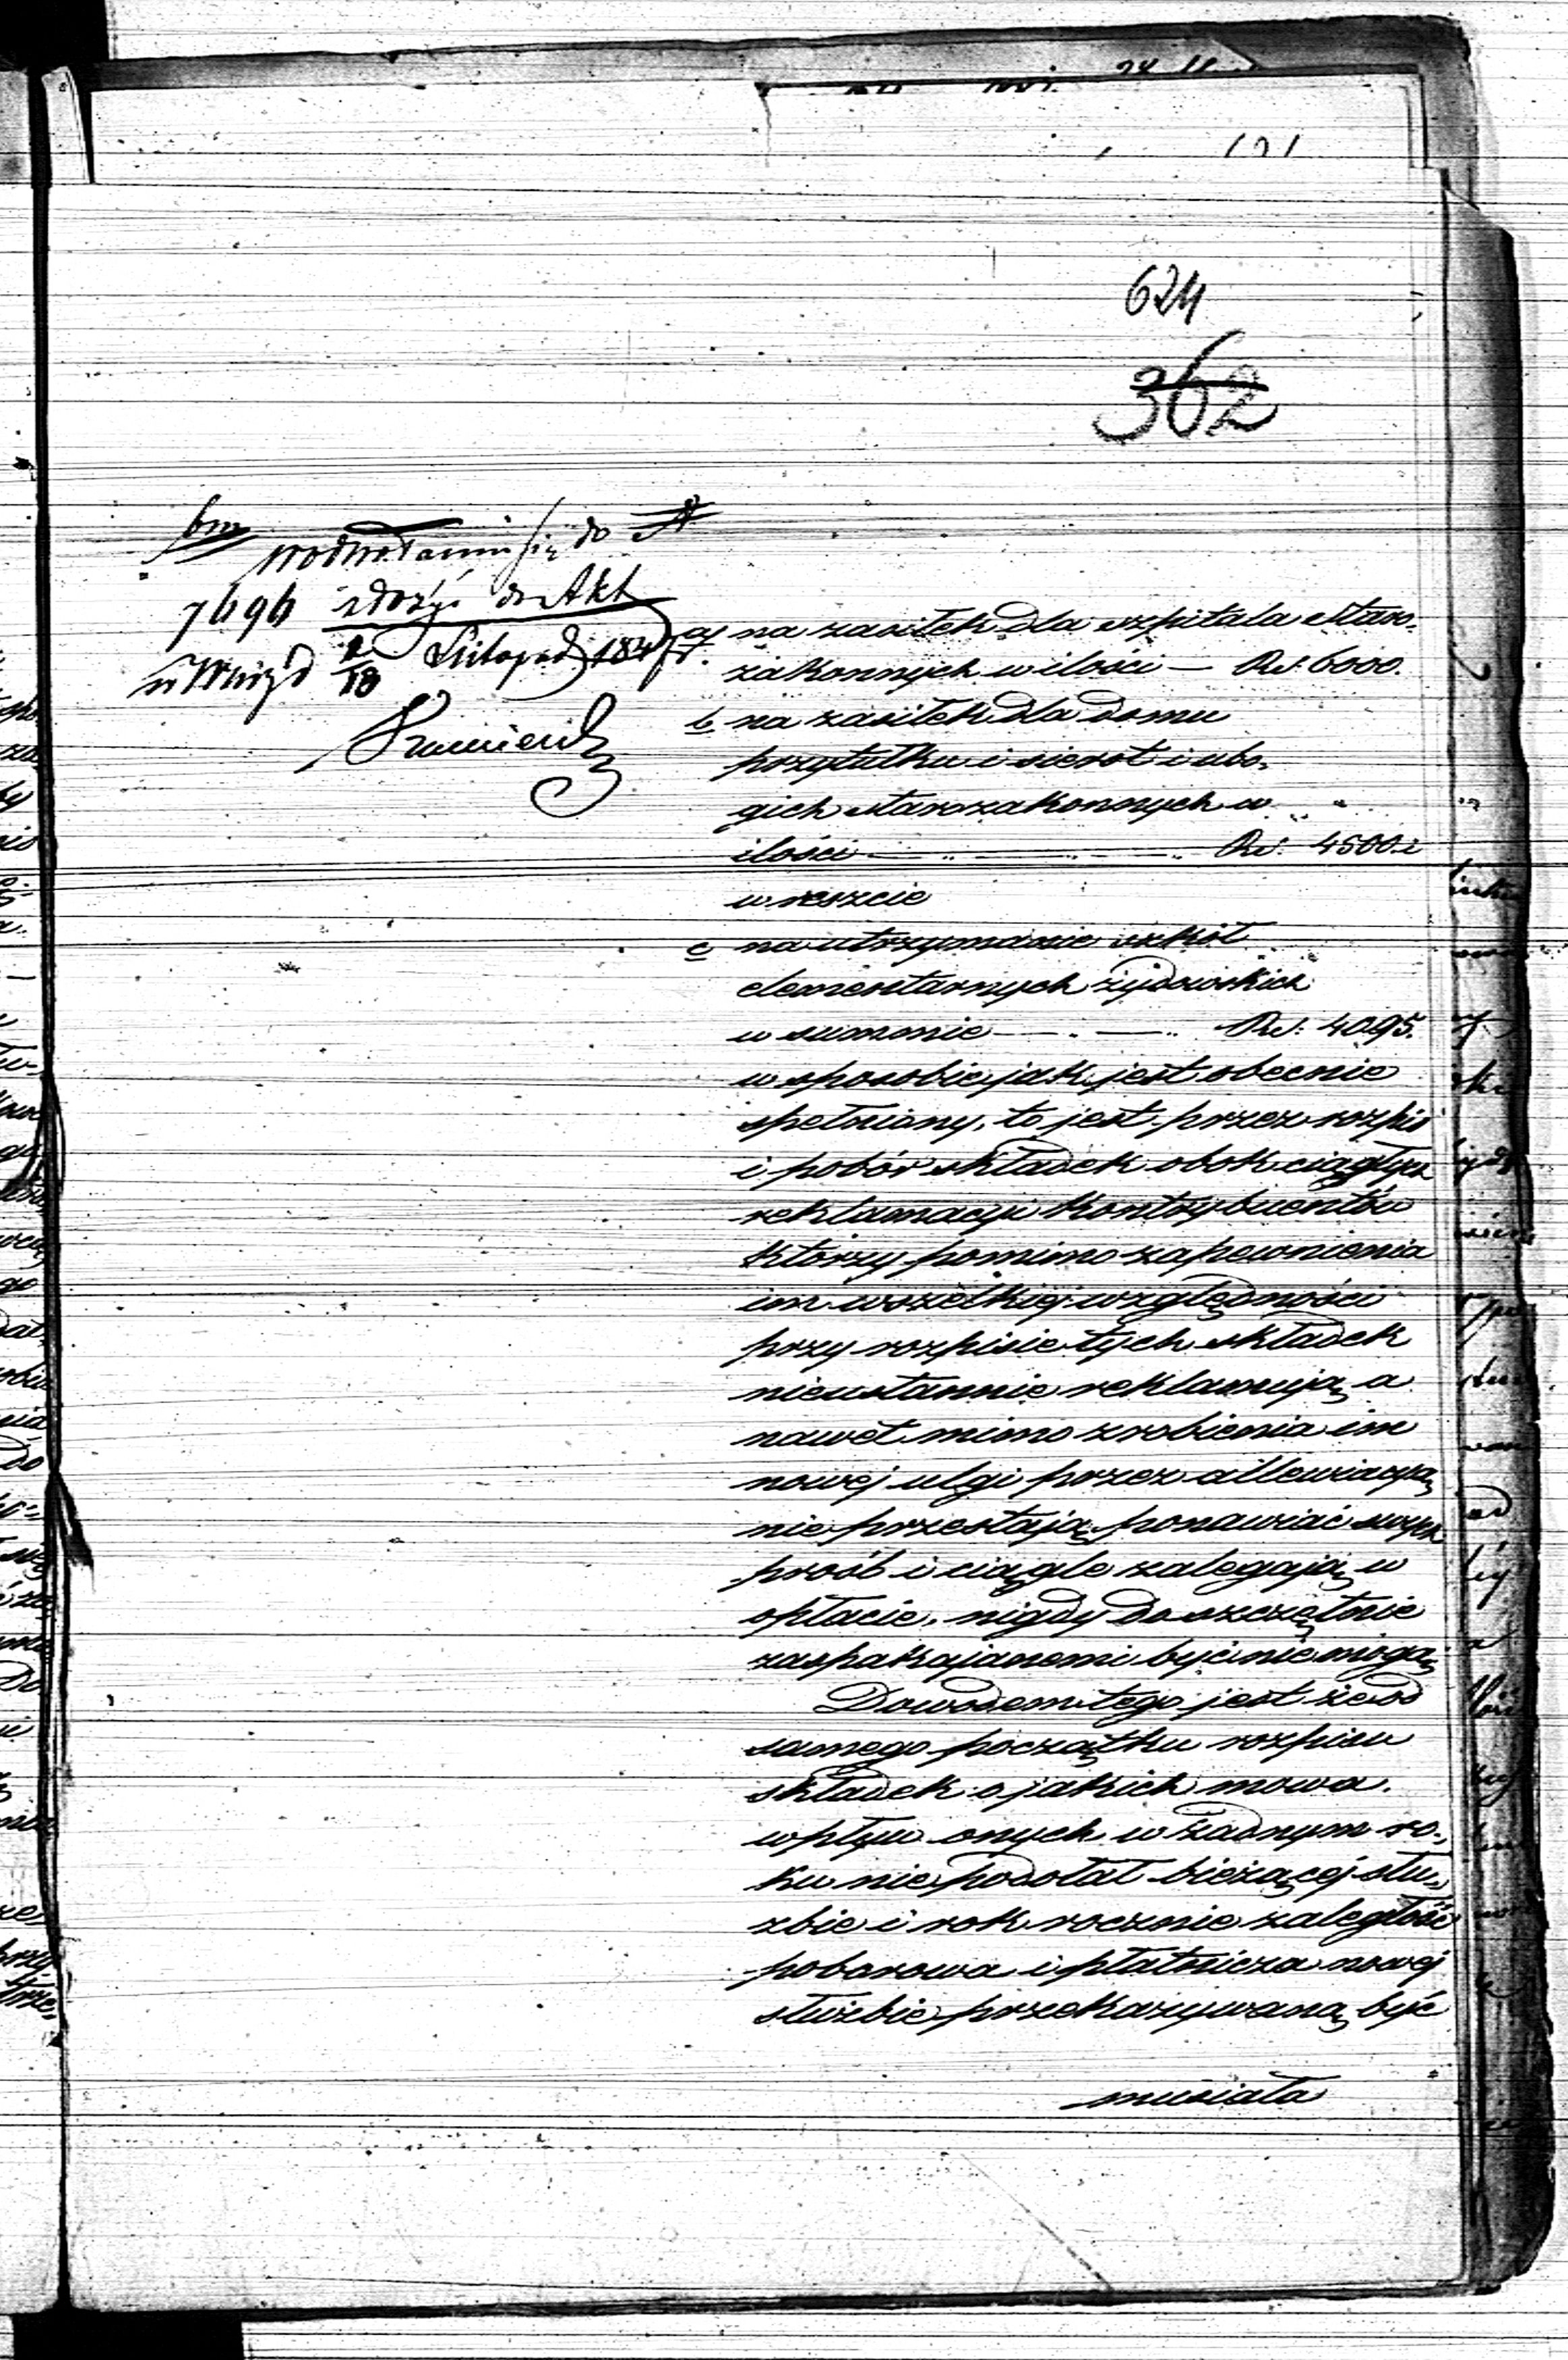 624
362
bm
powołaniem się do N
7696 złożyć do Akt
w Wwie d 6/18 Listopad 184
a) na zasiłek dla szpitala Staro-
zakonnych w ilości — Rs. 6000.
b na zasiłek dla domu
przytułku i sierot i ubo-
gich starozakonnych w
ilości — Rs. 4500.
w reszcie
c na utrzymanie szkół
elementarnych żydowskich
w summie — Rs. 4095.
w sposobie jak jest obecnie
spełniany, to jest przez rozpis
i pobór składek obok ciągłych
reklamacyi kontrybuentów
którzy pomimo zapewnienia
im wszelkiej względności
przy rozpisie tych składek
nieustannie reklamują a
nawet mimo zrobienia im
nowej ulgi przez allewiacyą
nie przestają ponawiać swych
prośb i ciągle zalegają w
opłacie, nigdy doszczętnie
zaspakajanemi być nie mogą
Dowodem tego jest że od
samego początku rozpisu
składek o jakich mowa.
wpływ onych w żadnym ro-
ku nie podołał bieżącej słu-
żbie i rok rocznie zaległość
poborowa i płatnicza nowej
służbie przekazywaną być
musiała